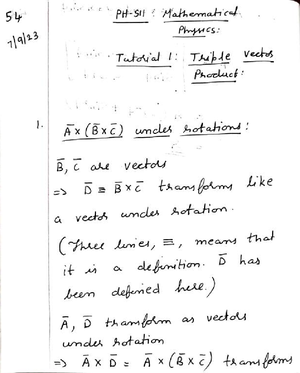 54
7/9/23
PH-511: Mathematical
Physics:
Tutorial 1: Triple vector
Product:
1. A̅ x (B̅ x C̅) under rotations:
B̅, C̅ are vectors
=> D̅ ≡ B̅ x C̅ transforms like
a vector under rotation.
(Three lines, ≡, means that
it is a definition. D̅ has
been defined here.)
A̅, D̅ transform as vectors
under rotation
=> A̅ x D̅ = A̅ x (B̅ x C̅) transforms